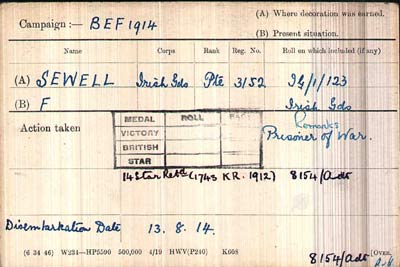 Campaign :— BEF 1914
(A) Where decoration was earned.
(B) Present situation.
Name Corps Rank Reg. No. Roll on which included (if any)
(A) SEWELL Irish Gds Pte 3152 IG/1/123
(B) F Irish Gds
Action taken
MEDAL ROLL PAGE
VICTORY
BRITISH
STAR
Remarks
Prisoner of War.
14 Star Retd (1743 KR. 1912) 8154/Adt
Disembarkation Date 13. 8. 14.
(6 34 46) W234—HP5590 500,000 4/19 HWV(P240) K608
8154/Adt
[OVER.